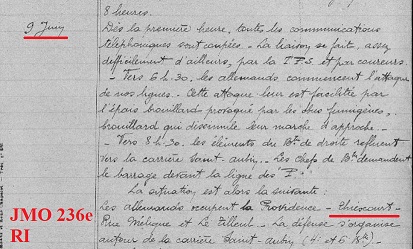 8 heures.
9 Juin
Dès la première heure, toutes les communications
téléphoniques sont coupées. La liaison se fait, assez
difficilement d'ailleurs, par la T.P.S. et par coureurs.
- Vers 6 h. 30. les allemands commencent l'attaque
de nos lignes. Cette attaque leur est facilitée par
l'épais brouillard provoqué par les obus fumigènes,
brouillard qui dissimule leur marche d'approche.
- Vers 8 h. 30. les éléments du Bon de droite refluent
vers la carrière Saint-Aubin. Les Chefs de Bon demandent
le barrage devant la ligne des
La situation est alors la suivante :
Les allemands occupent la Providence -
Rue Mélique et Le Tilleul. - La défense s'organise
autour de la carrière Saint-Aubin (4e et 6
JMO 236e
RI